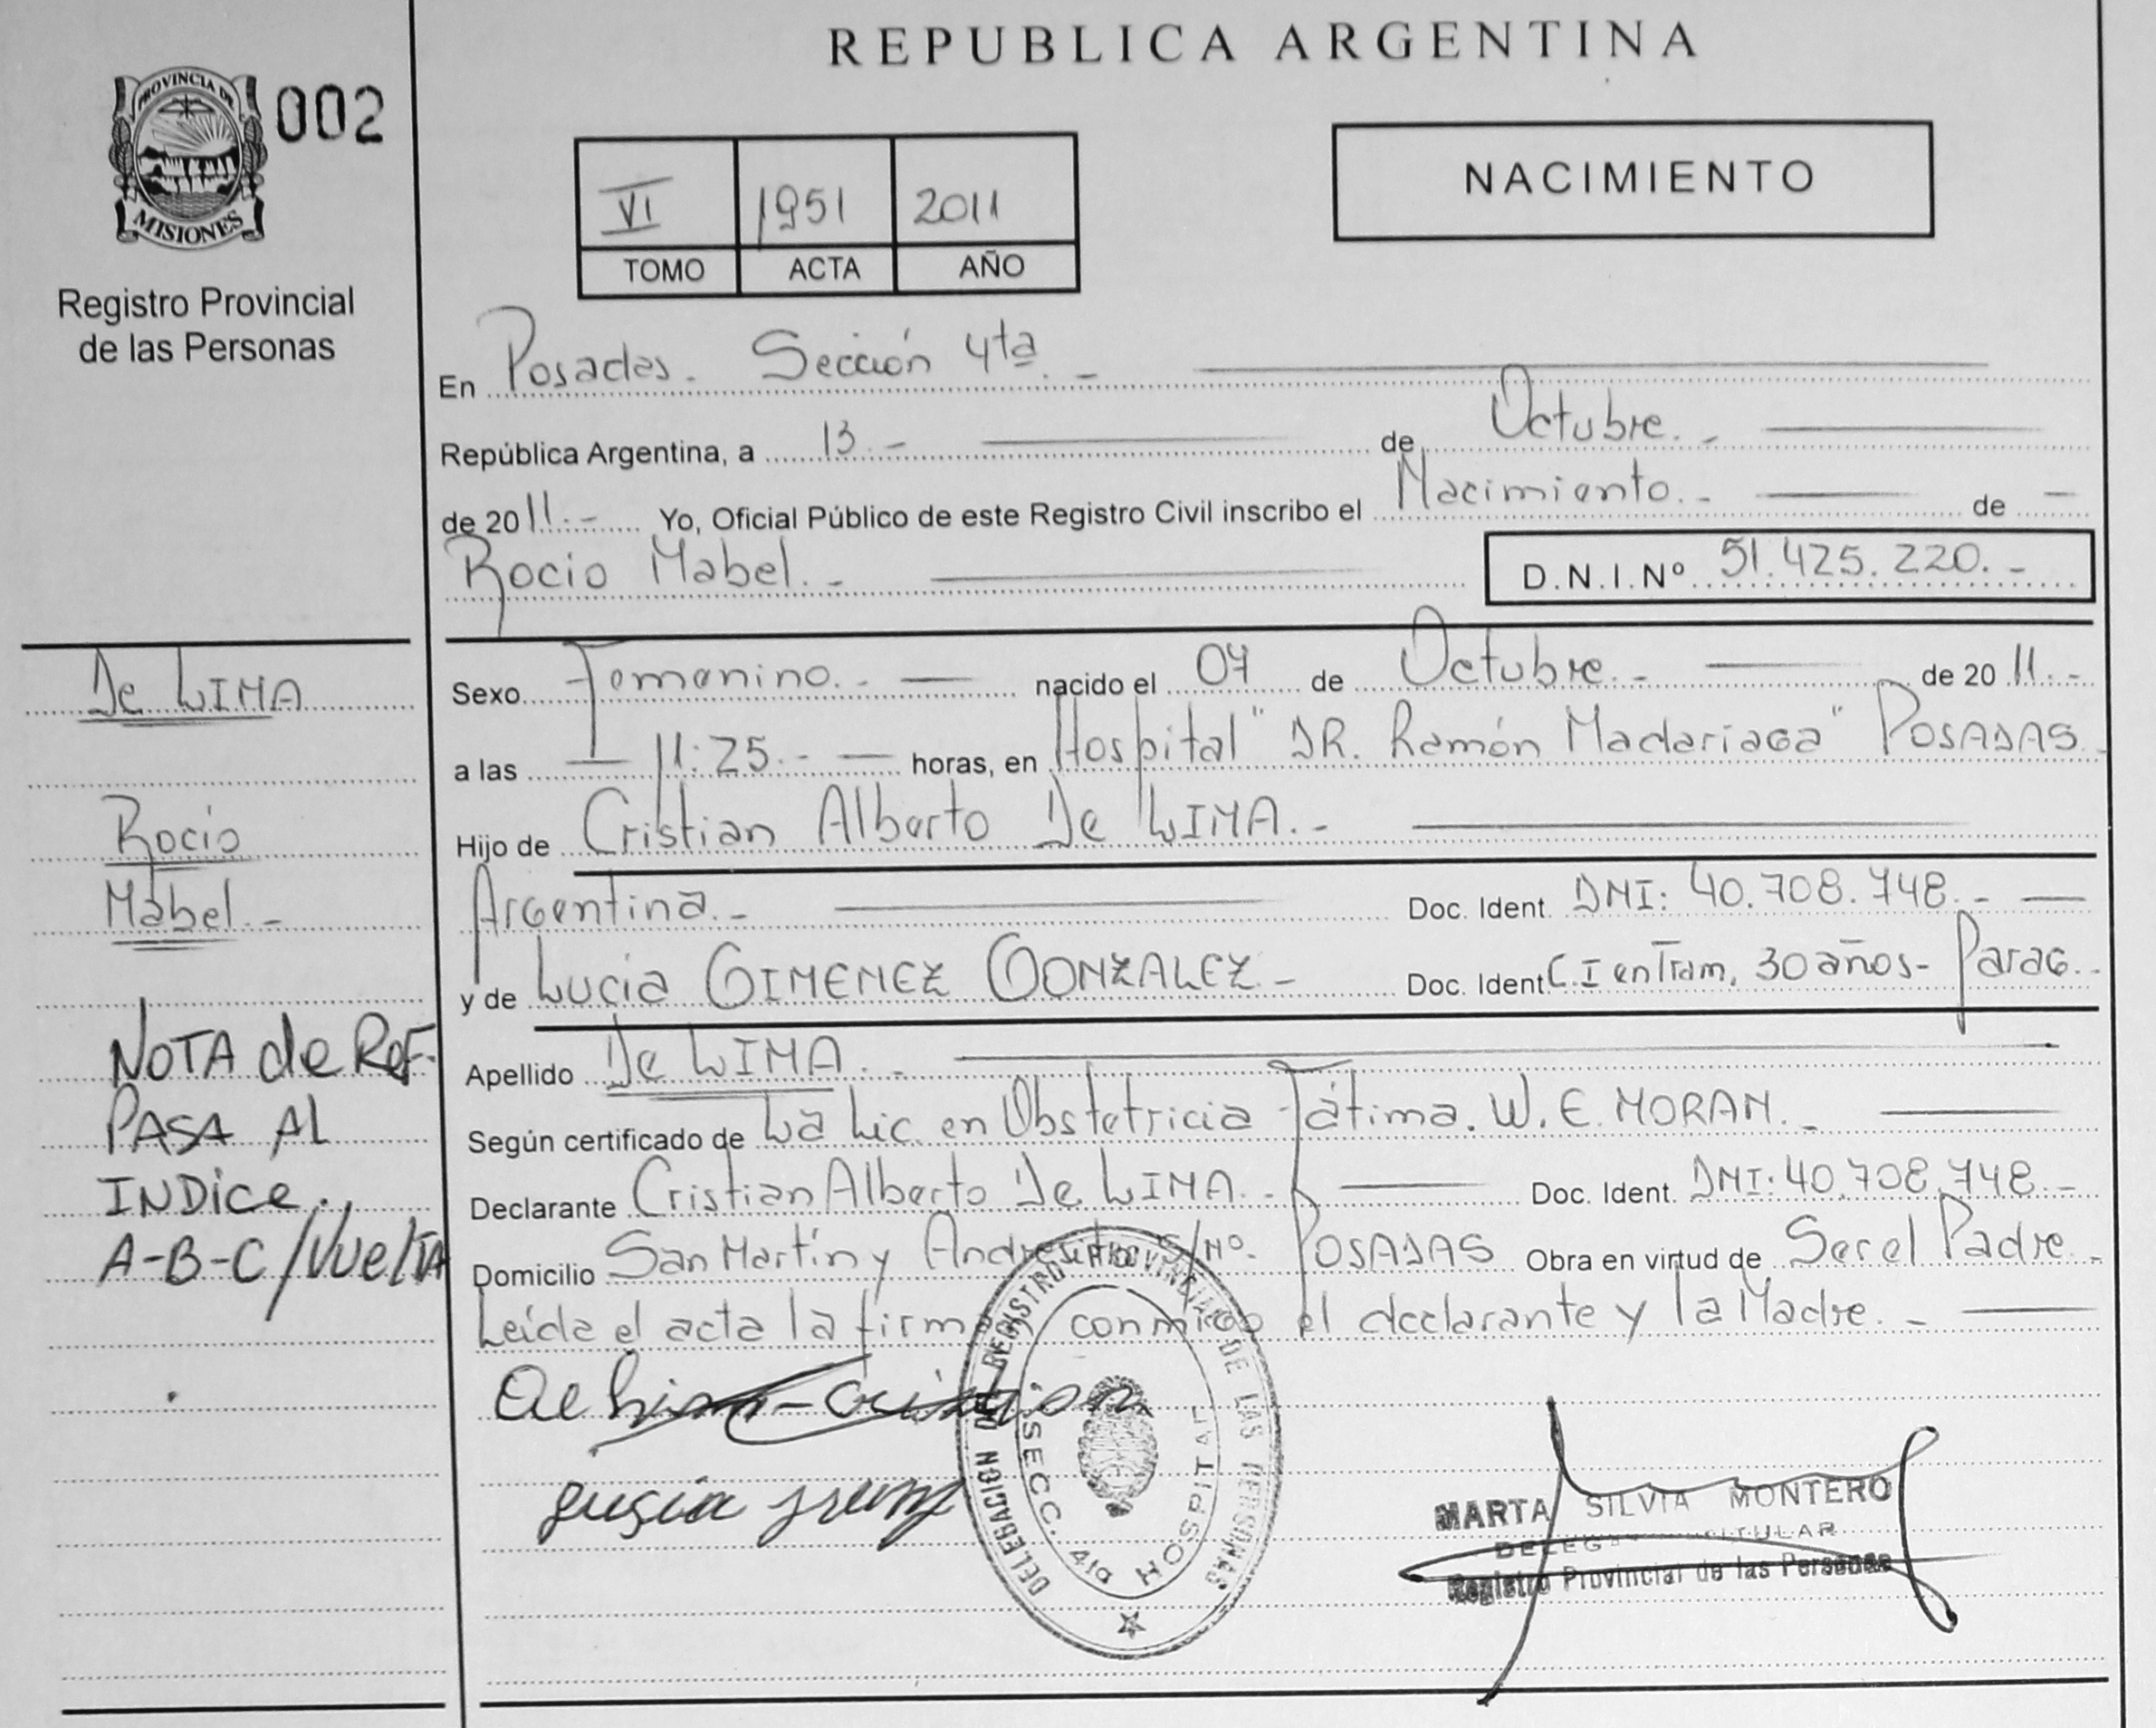 REPUBLICA ARGENTINA
PROVINCIA DE
MISIONES
002
Registro Provincial
de las Personas
VI 1951 2011
TOMO ACTA AÑO
NACIMIENTO
En Posadas. Sección 4ta. -
República Argentina, a 13.- de Octubre. -
de 2011.- Yo, Oficial Público de este Registro Civil inscribo el Nacimiento. - de -
Rocio Mabel. - D.N.I.Nº 51.425.220. -
Sexo Femenino. - nacido el 07 de Octubre. - de 2011.-
a las 11:25.- horas, en Hospital "DR. Ramón Madariaga" POSADAS.
Hijo de Cristian Alberto De LIMA. -
Argentina. - Doc. Ident. DNI: 40.708.748. -
y de Lucia GIMENEZ GONZALEZ - Doc. Ident C.I en Tram, 30 años - Parag. -
Apellido De LIMA. -
Según certificado de La Lic. en Obstetricia Fátima. W. E. MORAN. -
Declarante Cristian Alberto De LIMA. - Doc. Ident. DNI: 40.708.748. -
Domicilio San Martín y Andresito S/Nº. POSADAS Obra en virtud de Ser el Padre. -
Leída el acta la firman conmigo el declarante y la Madre. -
De LIMA
Rocio
Mabel. -
NOTA de Ref.
PASA AL
INDice.
A-B-C/VueltA
DELEGACION DEL REGISTRO PROVINCIAL DE LAS PERSONAS
SECC. 4ta HOSPITAL
MARTA SILVIA MONTERO
TITULAR
Registro Provincial de las Personas